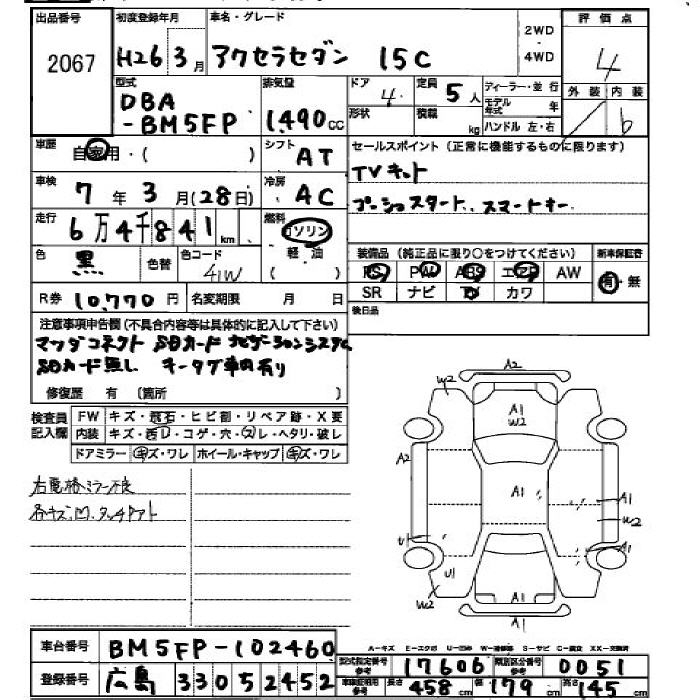 出品番号 2067
初度登録年月 H26 3月
車名・グレード アクセラセダン 15C
2WD・4WD
評価点 4
外装 内装 6
型式 DBA-BM5FP
排気量 1490cc
ドア 4
定員 5人
形状
積載 kg
ディーラー・並行
モデル年式 年
ハンドル 左・右
車歴 自家用・( )
シフト AT
セールスポイント (正常に機能するものに限ります)
TVキット
プッシュスタート、スマートキー
車検 7年3月(28日)
冷房 AC
走行 6万4千841km
燃料 ガソリン 軽・油 ( )
色 黒 色替
色コード 41W
装備品 (純正品に限り○をつけてください)
新車保証書 有・無
PS PW ABS エアB AW
SR ナビ TV カワ
後日品
R券 10,770円 名変期限 月 日
注意事項申告欄(不具合内容等は具体的に記入して下さい)
マツダコネクト SDカード ナビゲーションシステム
SDカード無し キータグ車内有り
修復歴 有 〔箇所 〕
検査員記入欄
FW キズ・飛石・ヒビ割・リペア跡・X要
内装 キズ・汚レ・コゲ・穴・スレ・ヘタリ・破レ
ドアミラー キズ・ワレ ホイール・キャップ キズ・ワレ
右電格ミラー不良
各キズ、凹、タッチアト
A2
W2
A1
W2
A2
A1
A1
W2
U1
A1
U1
W2
A1
A1
A-キズ E-エクボ U-凹み W-補修跡 S-サビ C-腐食 XX-交換済
車台番号 BM5FP-102460
登録番号 広島 330 す 2452
型式指定番号 参考 17606
類別区分番号 参考 0051
車庫証明用 参考 長さ 458cm 幅 179cm 高さ 145cm